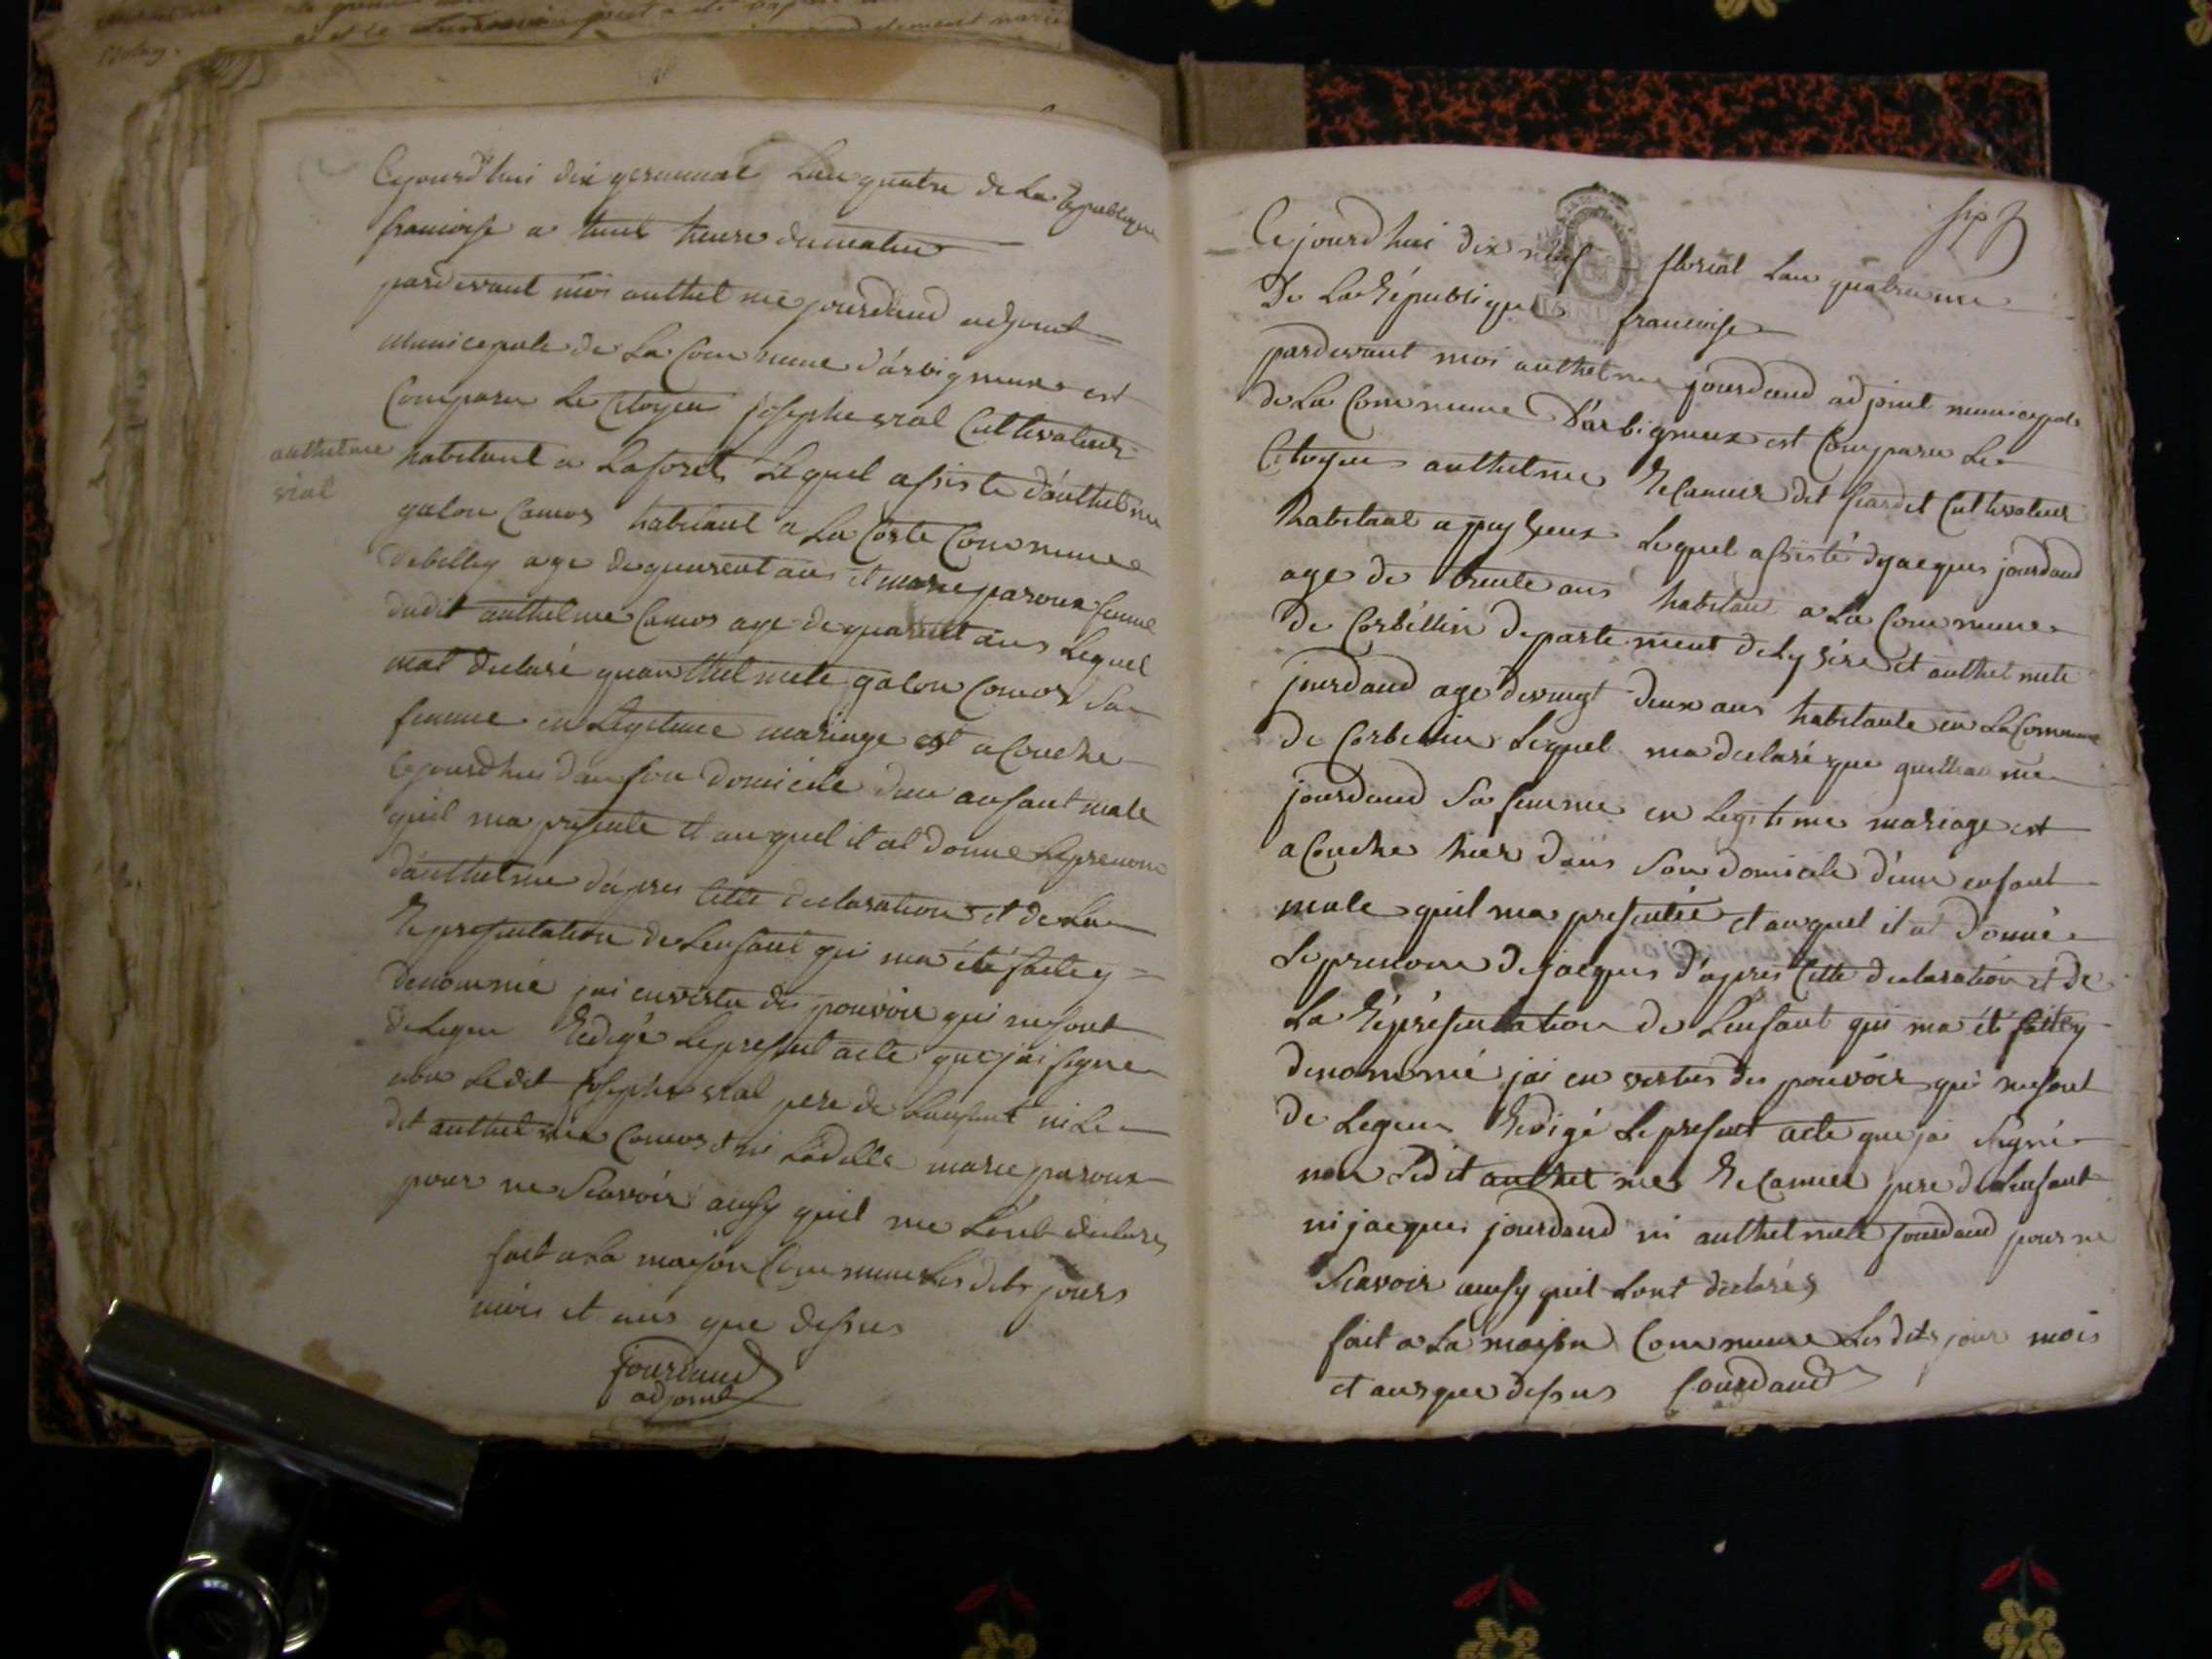 Cejourd'hui dix germinal Lan quatre de La republique
francoise a huit heure du matin
pardevant moi anthelme jourdand adjoint
municipale de La Commune d'arbignieux est
Comparu Le Citoyen josephe vial Cultivateur
habitant a Laforet Lequel assiste d'anthelme
galon Camos habitant a La Coste Commune
debelley age de quarent ans et marie paroux femme
dudit anthelme Camos age de quarent ans Lequel
mat declaré quanthelmete galon Camos Sa
femme en Legitime mariage est acouche
Cejourdhui dan son domicile dun anfant male
quil ma presente et auquel il at donne Leprenom
d'anthelme d'apres Cette declaration et de La
Representation de Lenfant qui ma été faite y
denommé jai envertu des pouvoir qui me sont
delegue Redigé Lepresent acte que jai signe
non Ledit josephe vial pere de Lenfant ni Le
dit anthelme Camos et ni Ladille marie paroux
pour ne Scavoir ausy quil me Lont declares
fait a La maison Commune Les dits jours
mois et ans que dessus
jourdand
adjoint
anthelme
vial
Cejourdhui dix neuf florial Lan quatrieme
De La République francoise
pardevant moi anthelme jourdand adjoint municipale
de La Commune D'arbignieux est Comparu Le
Citoyen anthelme Recamier dit Cultivateur
habitant a puy Lequel assisté de jacques jourdand
age de trente ans habitan a La Commune
de Corbellin departement de Lysére et anthelmete
jourdand age devingt deux ans habitante en La Commune
de Corbellin Lequel ma declaré que
jourdand Sa femme en Legitime mariage est
acouche hier dans Son domicile d'une enfant
male quil ma presentée et auquel il at donné
Leprenom de jacques d'apres Cette declaration et de
La Représentation de Lenfant qui ma été faitte y
denommé jai en vertus des pouvoir qui me sont
de Legue Redigé Le present acte que jai Signé
non Ledit anthelme Recamier pere de Lenfant
ni jacques jourdand ni anthelmete jourdand pour ne
Scavoir ausy quil Lont declarés
fait a La maison Commune Les dits jour mois
et ans que dessus jourdand